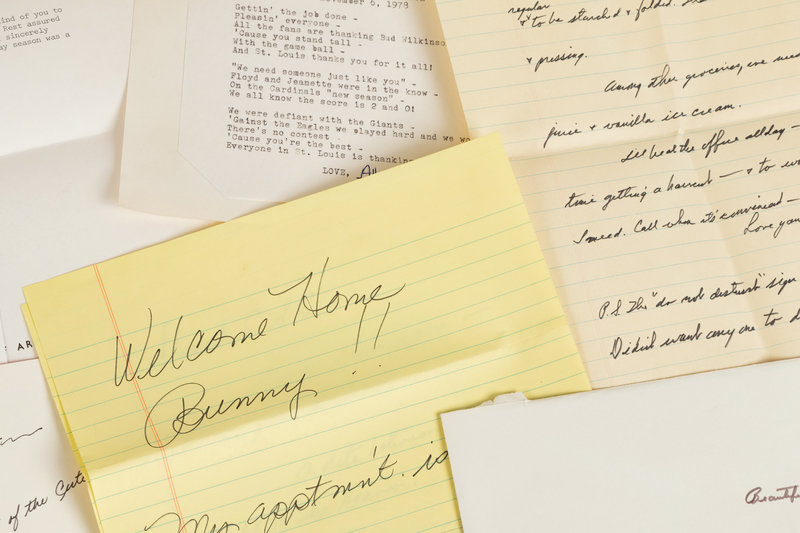 kind of you to
Rest assured
sincerely
season was a
November 6, 1978
Gettin' the job done -
Pleasin' everyone -
All the fans are thanking Bud Wilkinso
'Cause you stand tall -
With the game ball -
And St. Louis thanks you for it all!
"We need someone just like you" -
Floyd and Jeanette were in the know -
On the Cardinals "new season" -
We all know the score is 2 and O!
We were defiant with the Giants -
'Gainst the Eagles we played hard and we wo
There's no contest
'Cause you're the best -
Everyone in St. Louis is thankin
LOVE,
regular
+ to be starched + folded.
+ pressing.
Among other groceries, we need
juice + vanilla ice cream.
I'll be at the office all day —
time getting a haircut — + to
I need. Call when it's convenient —
Love you
P.S. The "do not disturb" sign
Didn't want anyone to d
Welcome Home
Bunny!!
My apptm't. is
: AR
of the Cute
Beautif